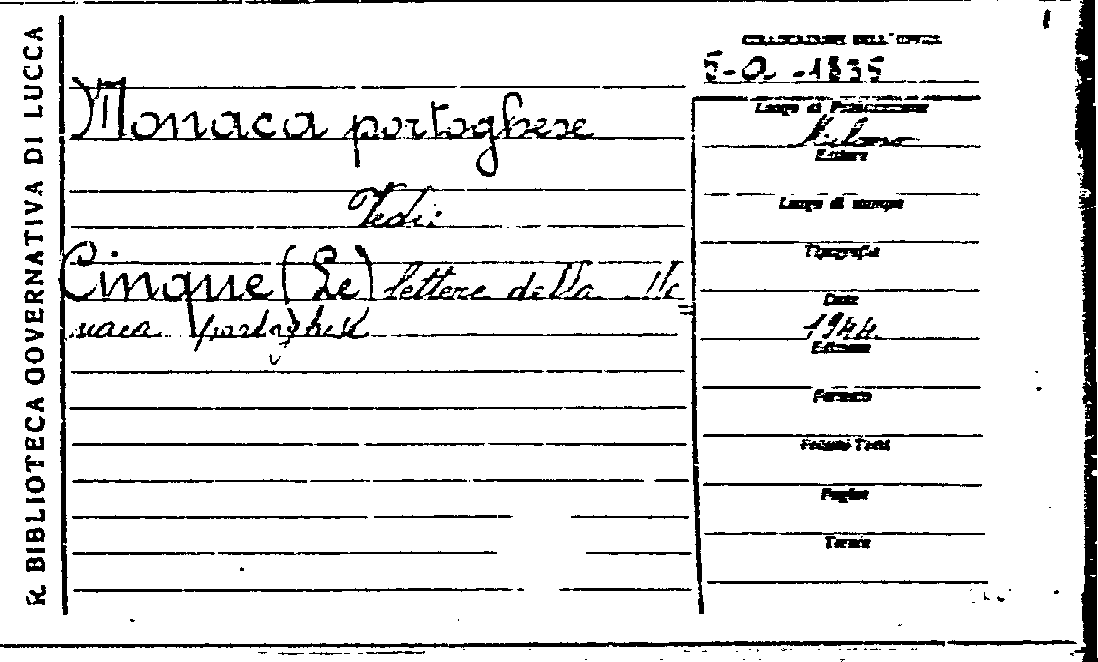 R. BIBLIOTECA GOVERNATIVA DI LUCCA
COLLOCAZIONE DELL'OPERA
Monaca portoghese
Vedi:
Cinque (Le) lettere della Mo=
naca portoghese
Luogo di Pubblicazione
Milano
Editore
Luogo di stampa
Tipografia
Data
1944.
Edizione
Formato
Pagine